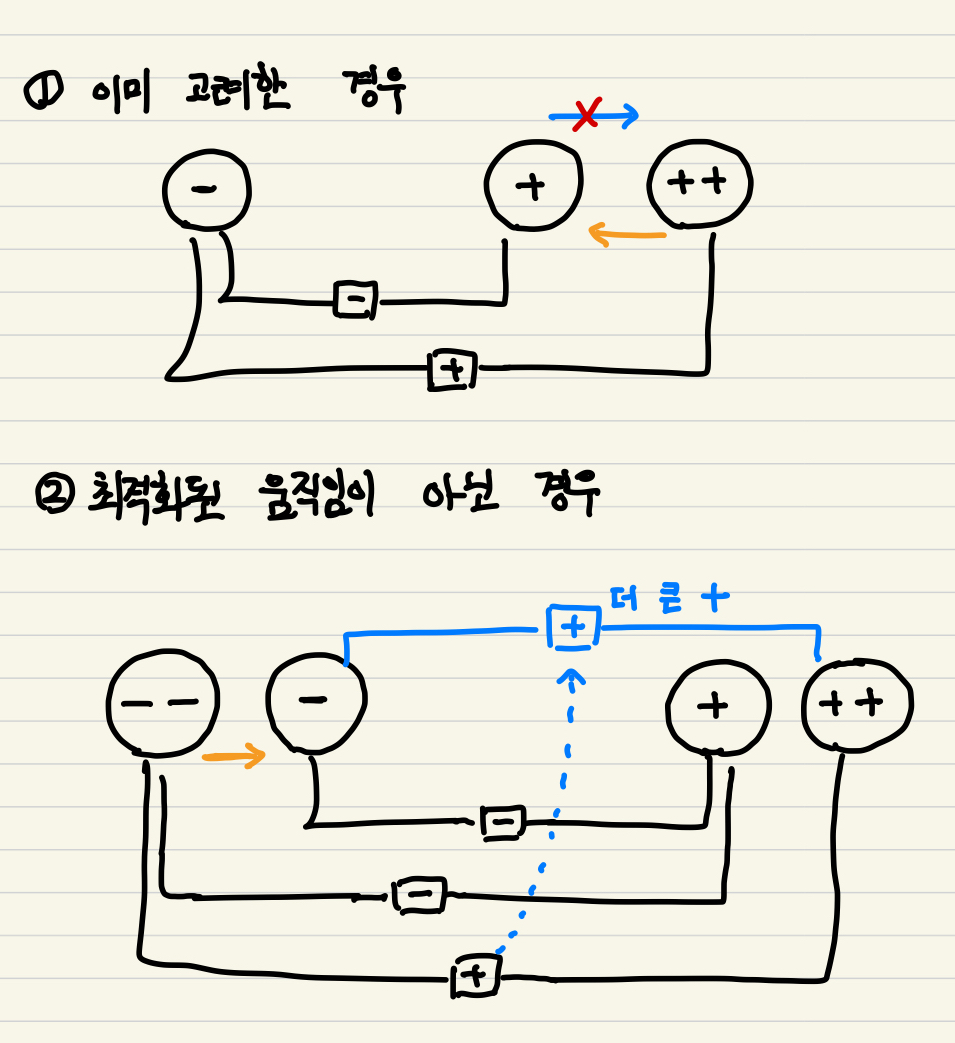 ① 이미 고려한 경우
- + ++
-
+
② 최적화된 움직임이 아닌 경우
+ 더 큰 +
-- - + ++
-
-
+